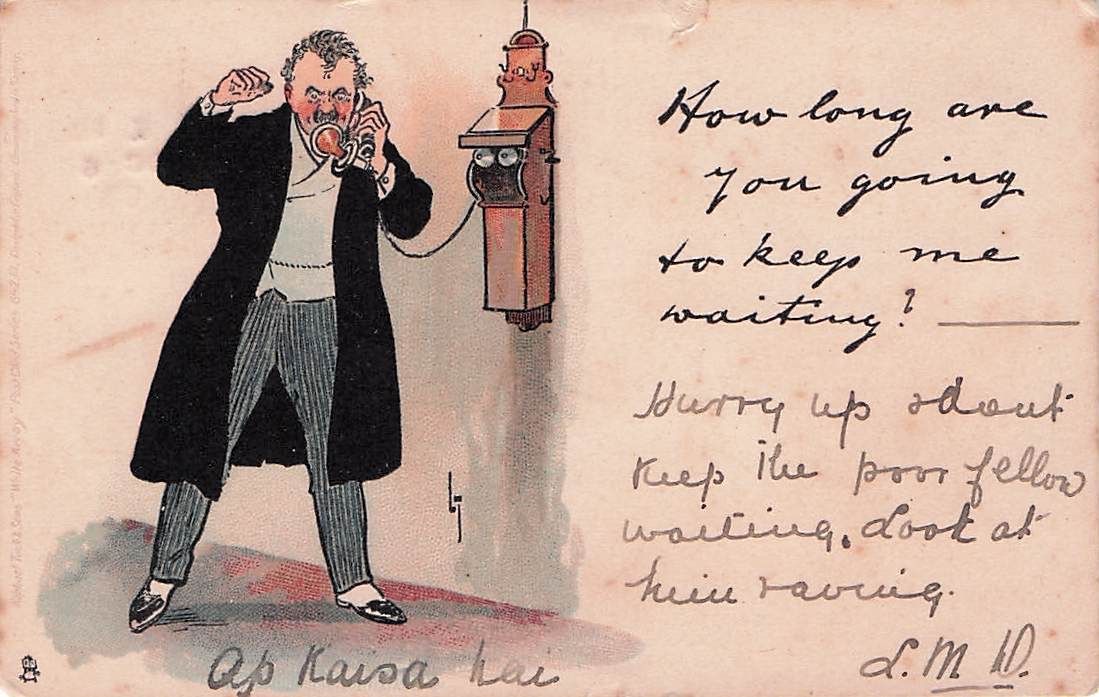 How long are
you going
to keep me
waiting?
Hurry up & dont
Keep the poor fellow
waiting. Look at
him raving.
L. M. D.
Ap Kaisa hai
"Write Away" Post Card Series 642